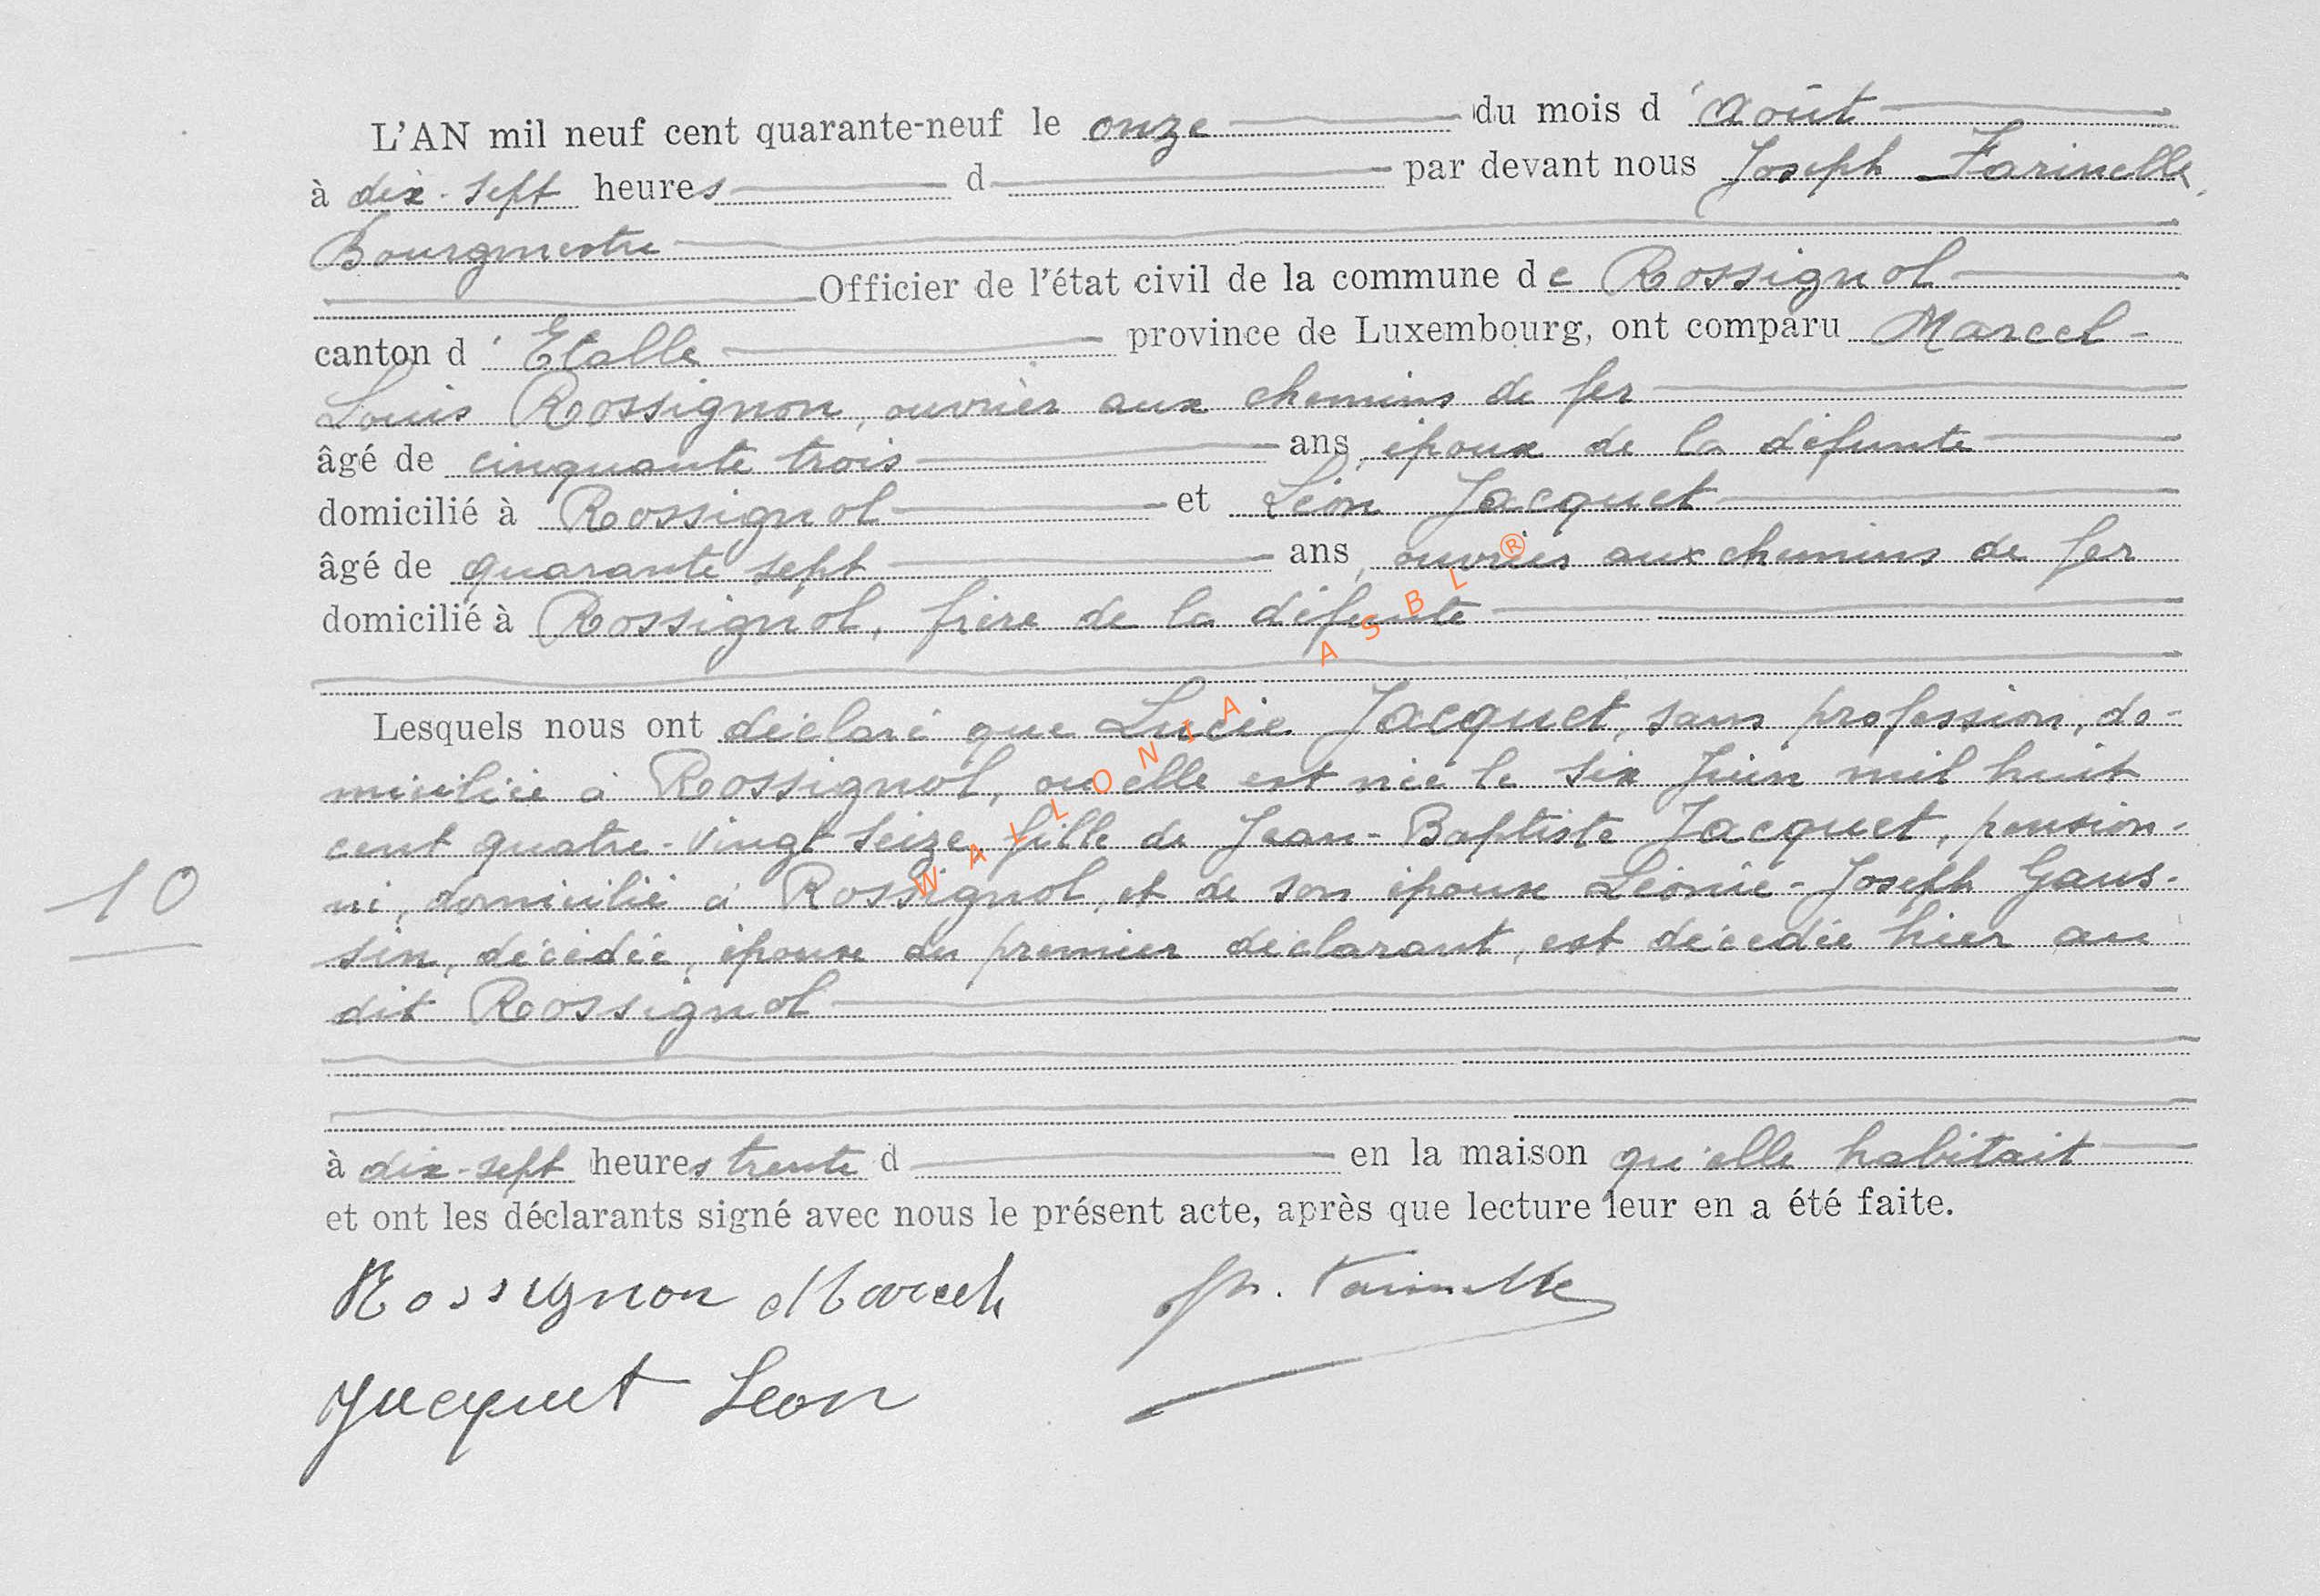 L'AN mil neuf cent quarante-neuf le onze du mois d'Août
à dix-sept heures d par devant nous Joseph Farinelle,
Bourgmestre
Officier de l'état civil de la commune de Rossignol
canton d'Etalle province de Luxembourg, ont comparu Marcel-
Louis Rossignon, ouvrier aux chemins de fer
âgé de cinquante trois ans, époux de la défunte
domicilié à Rossignol et Léon Jacquet
âgé de quarante sept ans, ouvrier aux chemins de fer
domicilié à Rossignol, frère de la défunte
Lesquels nous ont déclaré que Lucie Jacquet, sans profession, do-
miciliée à Rossignol, où elle est née le six Juin mil huit
cent quatre-vingt seize, fille de Jean-Baptiste Jacquet, pension-
né, domicilié à Rossignol, et de son épouse Léonie-Joseph Gaus-
sin, décédée, épouse du premier déclarant, est décédée hier au
dit Rossignol
10
à dix-sept heures trente d en la maison qu'elle habitait
et ont les déclarants signé avec nous le présent acte, après que lecture leur en a été faite.
Rossignon Marcel Jh. Farinelle
Jacquet Leon
WALLONIA ASBL ®